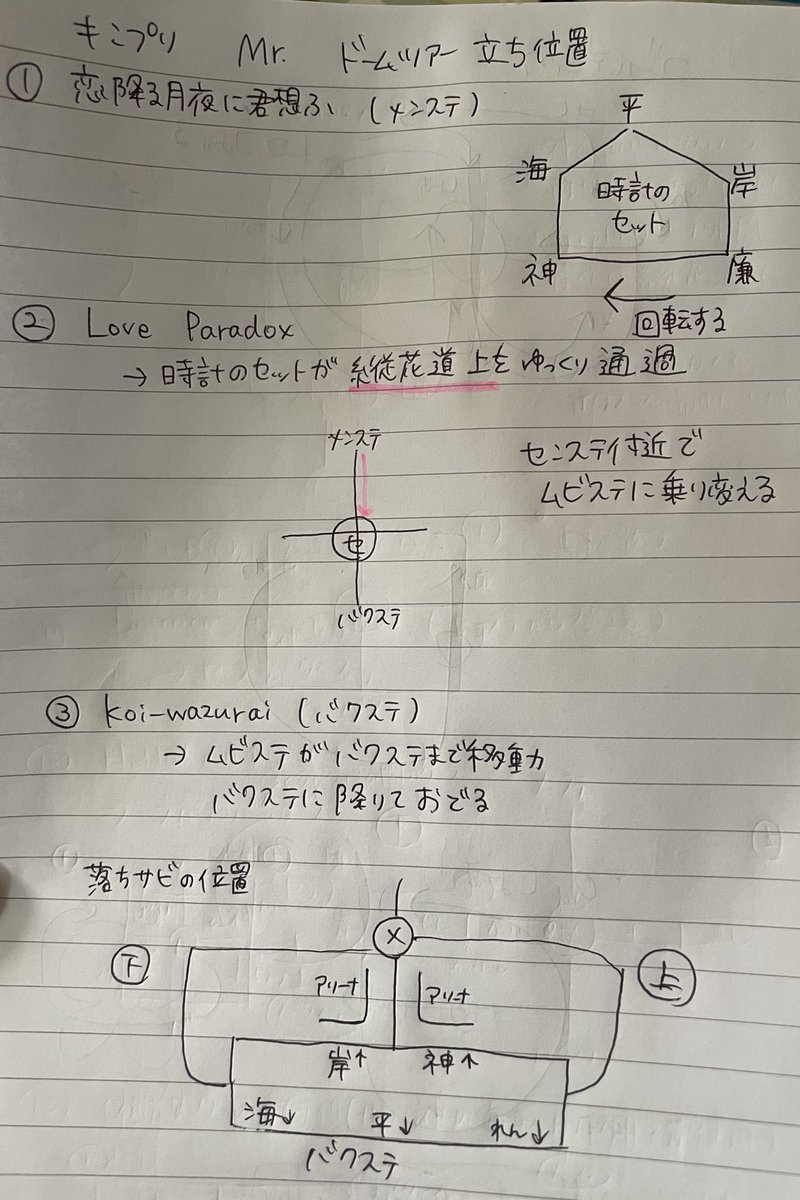 キンプリ Mr. ドームツアー 立ち位置
① 恋降る月夜に君想ふ (メンステ)
平
海 岸
時計の
セット
神 廉
←
回転する
② Love Paradox
→ 時計のセットが 縦花道 上を ゆっくり 通過
メンステ
センステ付近で
ムビステに乗り変える
セ
バクステ
③ koi-wazurai (バクステ)
→ ムビステがバクステまで移動
バクステに降りておどる
落ちサビの位置
X
下 上
アリーナ アリーナ
岸↑ 神↑
海↓ 平↓ れん↓
バクステ